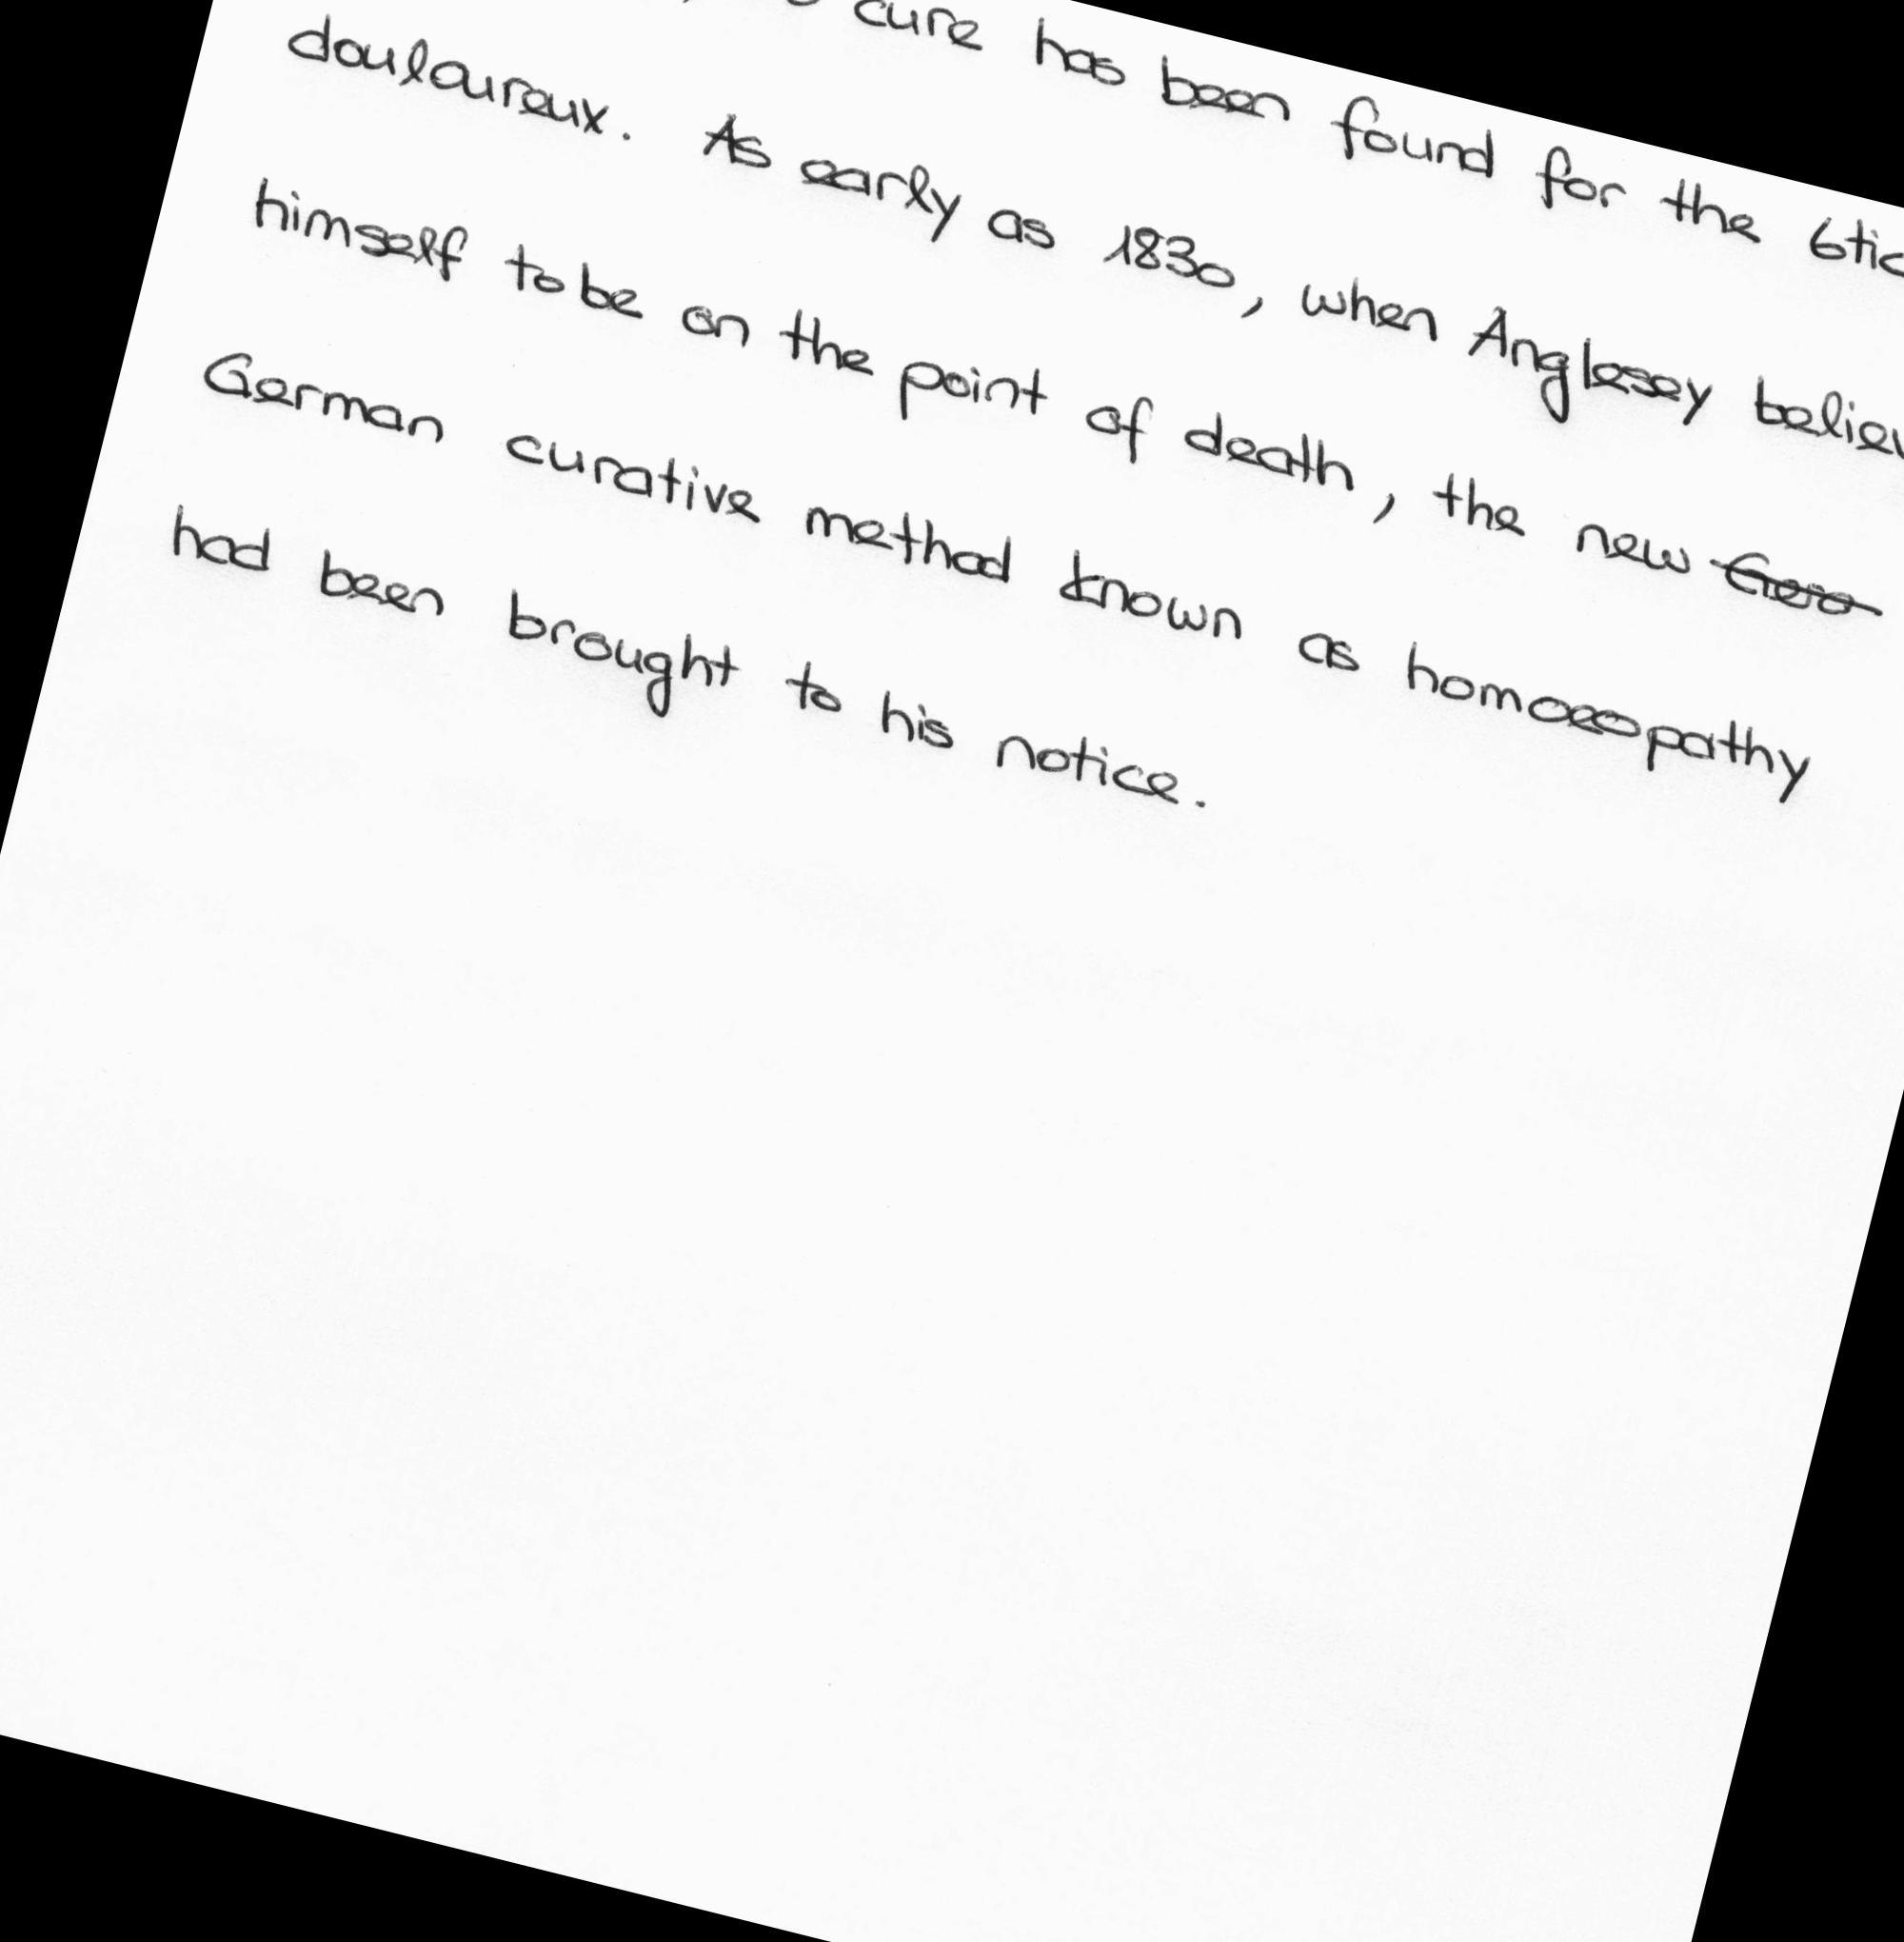 cure has been found for the 6tic
douloureux. As early as 1830, when Anglesey believ
himself to be on the point of death, the new
German curative method known as homoeopathy
had been brought to his notice.